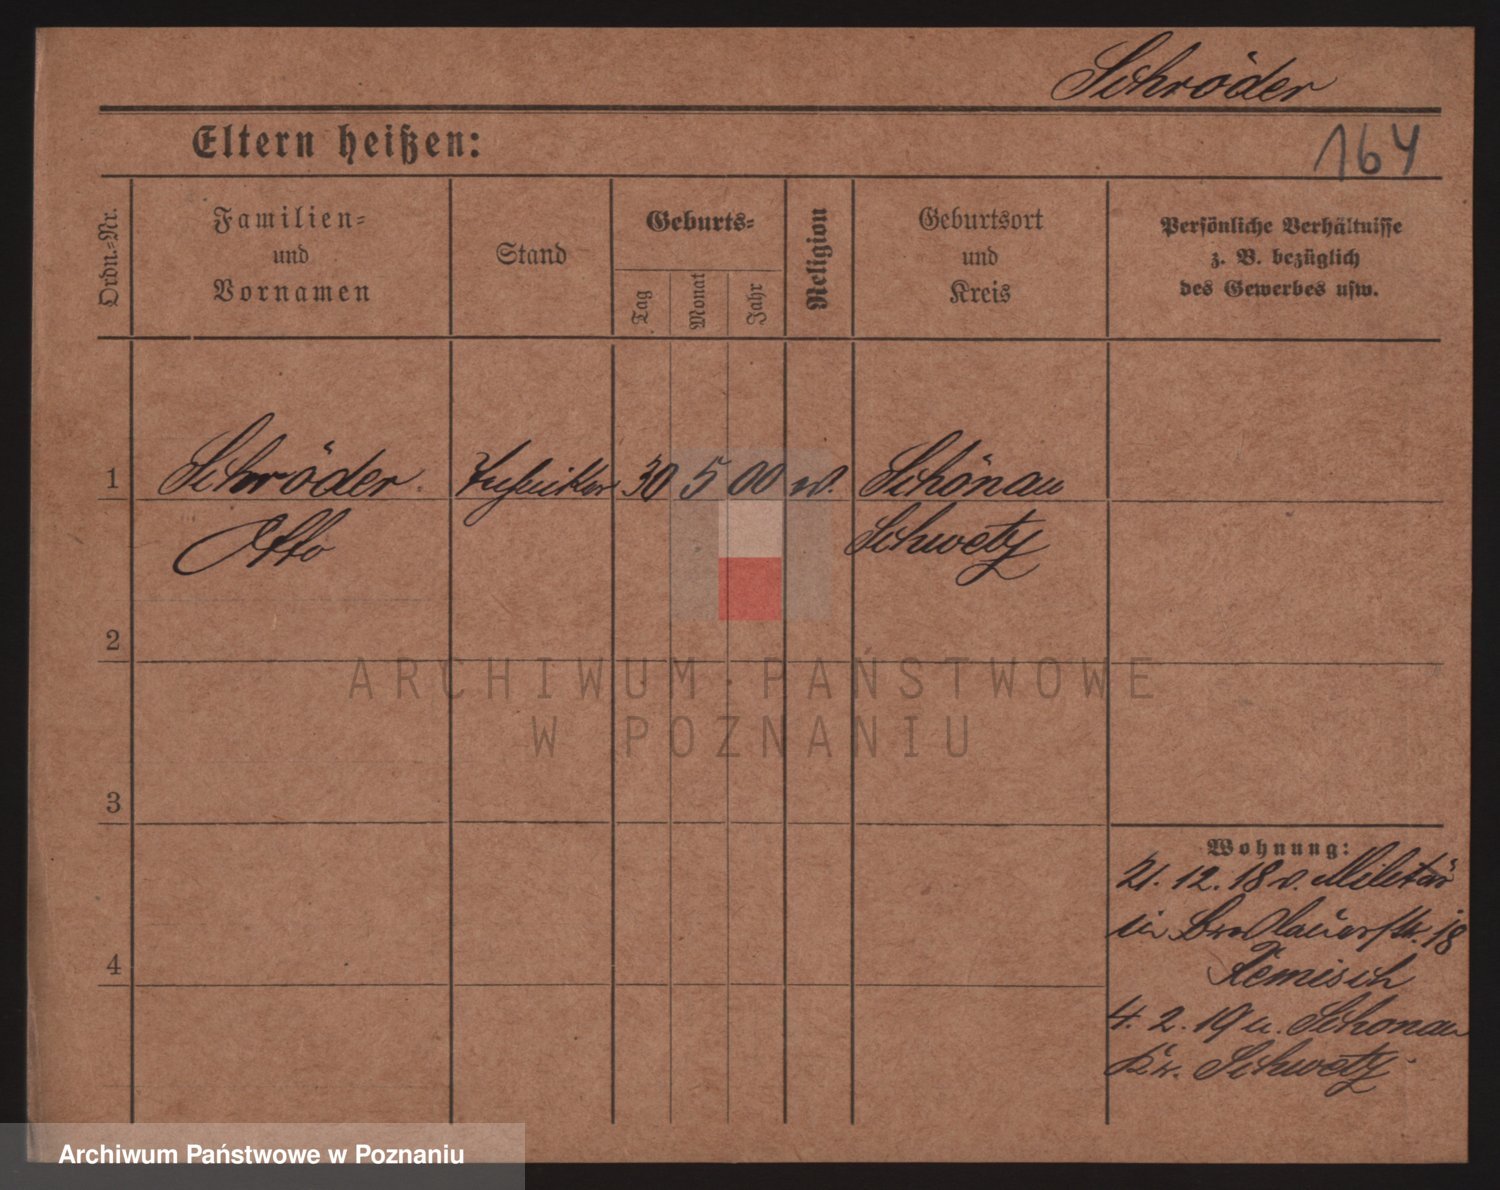 Schröder
Eltern heißen:
164
Ordn.-Nr.
Familien-
und
Vornamen
Stand
Geburts-
Tag
Monat
Jahr
Religion
Geburtsort
und
Kreis
Persönliche Verhältnisse
z. B. bezüglich
des Gewerbes usw.
1 Schröder 30 5 00 Schönau
Otto Schwetz
2
3
4
Wohnung:
21. 12. 18 v. Militär
in 18
4. 2. 19 n. Schonau
Kr. Schwetz
ARCHIWUM PAŃSTWOWE
W POZNANIU
Archiwum Państwowe w Poznaniu